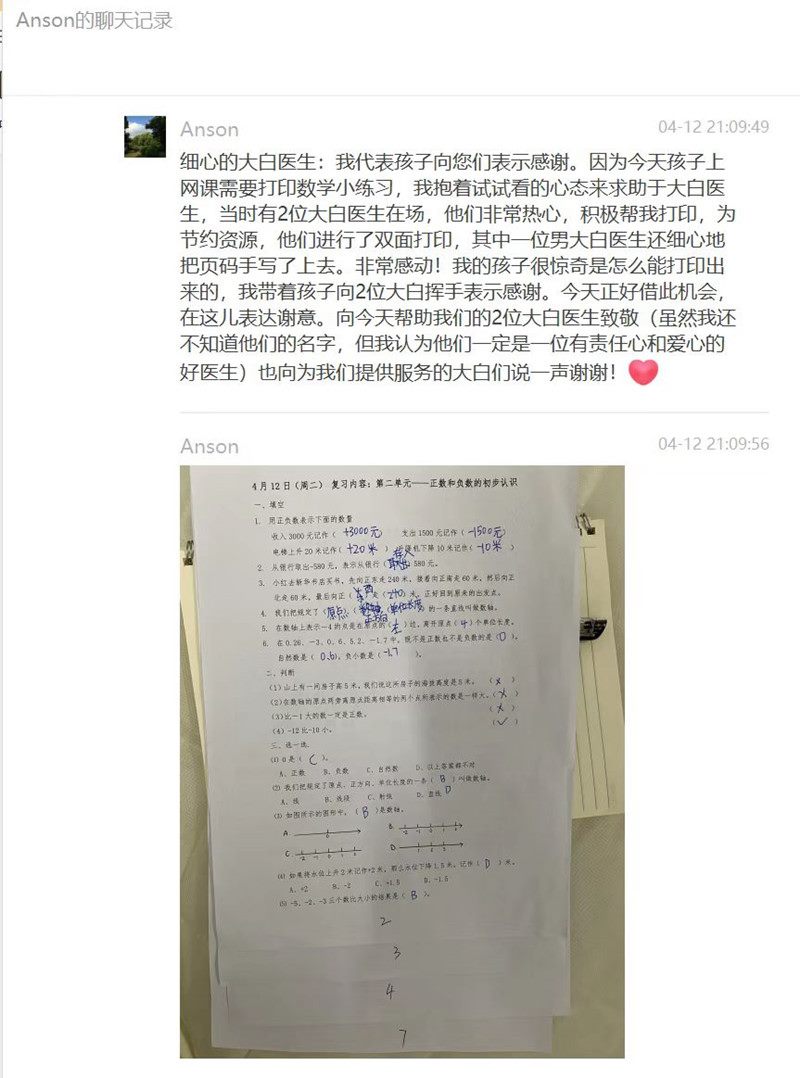 Anson的聊天记录
Anson
04-12 21:09:49
细心的大白医生：我代表孩子向您们表示感谢。因为今天孩子上
网课需要打印数学小练习，我抱着试试看的心态来求助于大白医
生，当时有2位大白医生在场，他们非常热心，积极帮我打印，为
节约资源，他们进行了双面打印，其中一位男大白医生还细心地
把页码手写了上去。非常感动！我的孩子很惊奇是怎么能打印出
来的，我带着孩子向2位大白挥手表示感谢。今天正好借此机会，
在这儿表达谢意。向今天帮助我们的2位大白医生致敬（虽然我还
不知道他们的名字，但我认为他们一定是一位有责任心和爱心的
好医生）也向为我们提供服务的大白们说一声谢谢！
Anson
04-12 21:09:56
4月12日（周二） 复习内容：第二单元——正数和负数的初步认识
一、填空
1. 用正负数表示下面的数量
收入3000元记作（ +3000元 ） 支出1500元记作（ -1500元 ）
电梯上升20米记作（ +20米 ） 下降10米记作（ -10米 ）
2. 从银行取出-580元，表示从银行（ 存入 ）580元。
3. 小红去新华书店买书，先向正东走240米，接着向正南走60米，然后向正
北走60米，最后向正（ 西 ）走（ 240 ）米，正好回到原来的出发点。
4. 我们把规定了（ 原点 ）（ 正方向 ）（ 单位长度 ）的一条直线叫做数轴。
5. 在数轴上表示-4的点是在原点的（ 左 ）边，离开原点（ 4 ）个单位长度。
6. 在0.26、-3、0、6、5.2、-1.7中，既不是正数也不是负数的是（ 0 ），
自然数是（ 0.6 ），负小数是（ -1.7 ）。
二、判断
(1)山上有一间房子高5米，我们说这所房子的海拔高度是5米。 （ × ）
(2)在数轴的原点两旁离原点距离相等的两个点所表示的数是一样大。（ × ）
(3)比-1大的数一定是正数。 （ × ）
(4)-12比-10小。 （ ✓ ）
三、选一选
(1) 0是（ C ）。
A、正数 B、负数 C、自然数 D、以上答案都不对
(2) 我们把规定了原点、正方向、单位长度的一条（ B ）叫做数轴。
A、线 B、线段 C、射线 D、直线 D
(3) 如图所示的图形中，（ B ）是数轴。
A. 0 B. -2 -1 0 1 2
C. -2 -1 0 1 2 D. 1 2 3
(4) 如果将水位上升2米记作+2米，那么水位下降1.5米，记作（ D ）米。
A、+2 B、-2 C、+1.5 D、-1.5
(5) -5、-2、-3三个数比大小的结果是（ B ）。
2
3
4
7